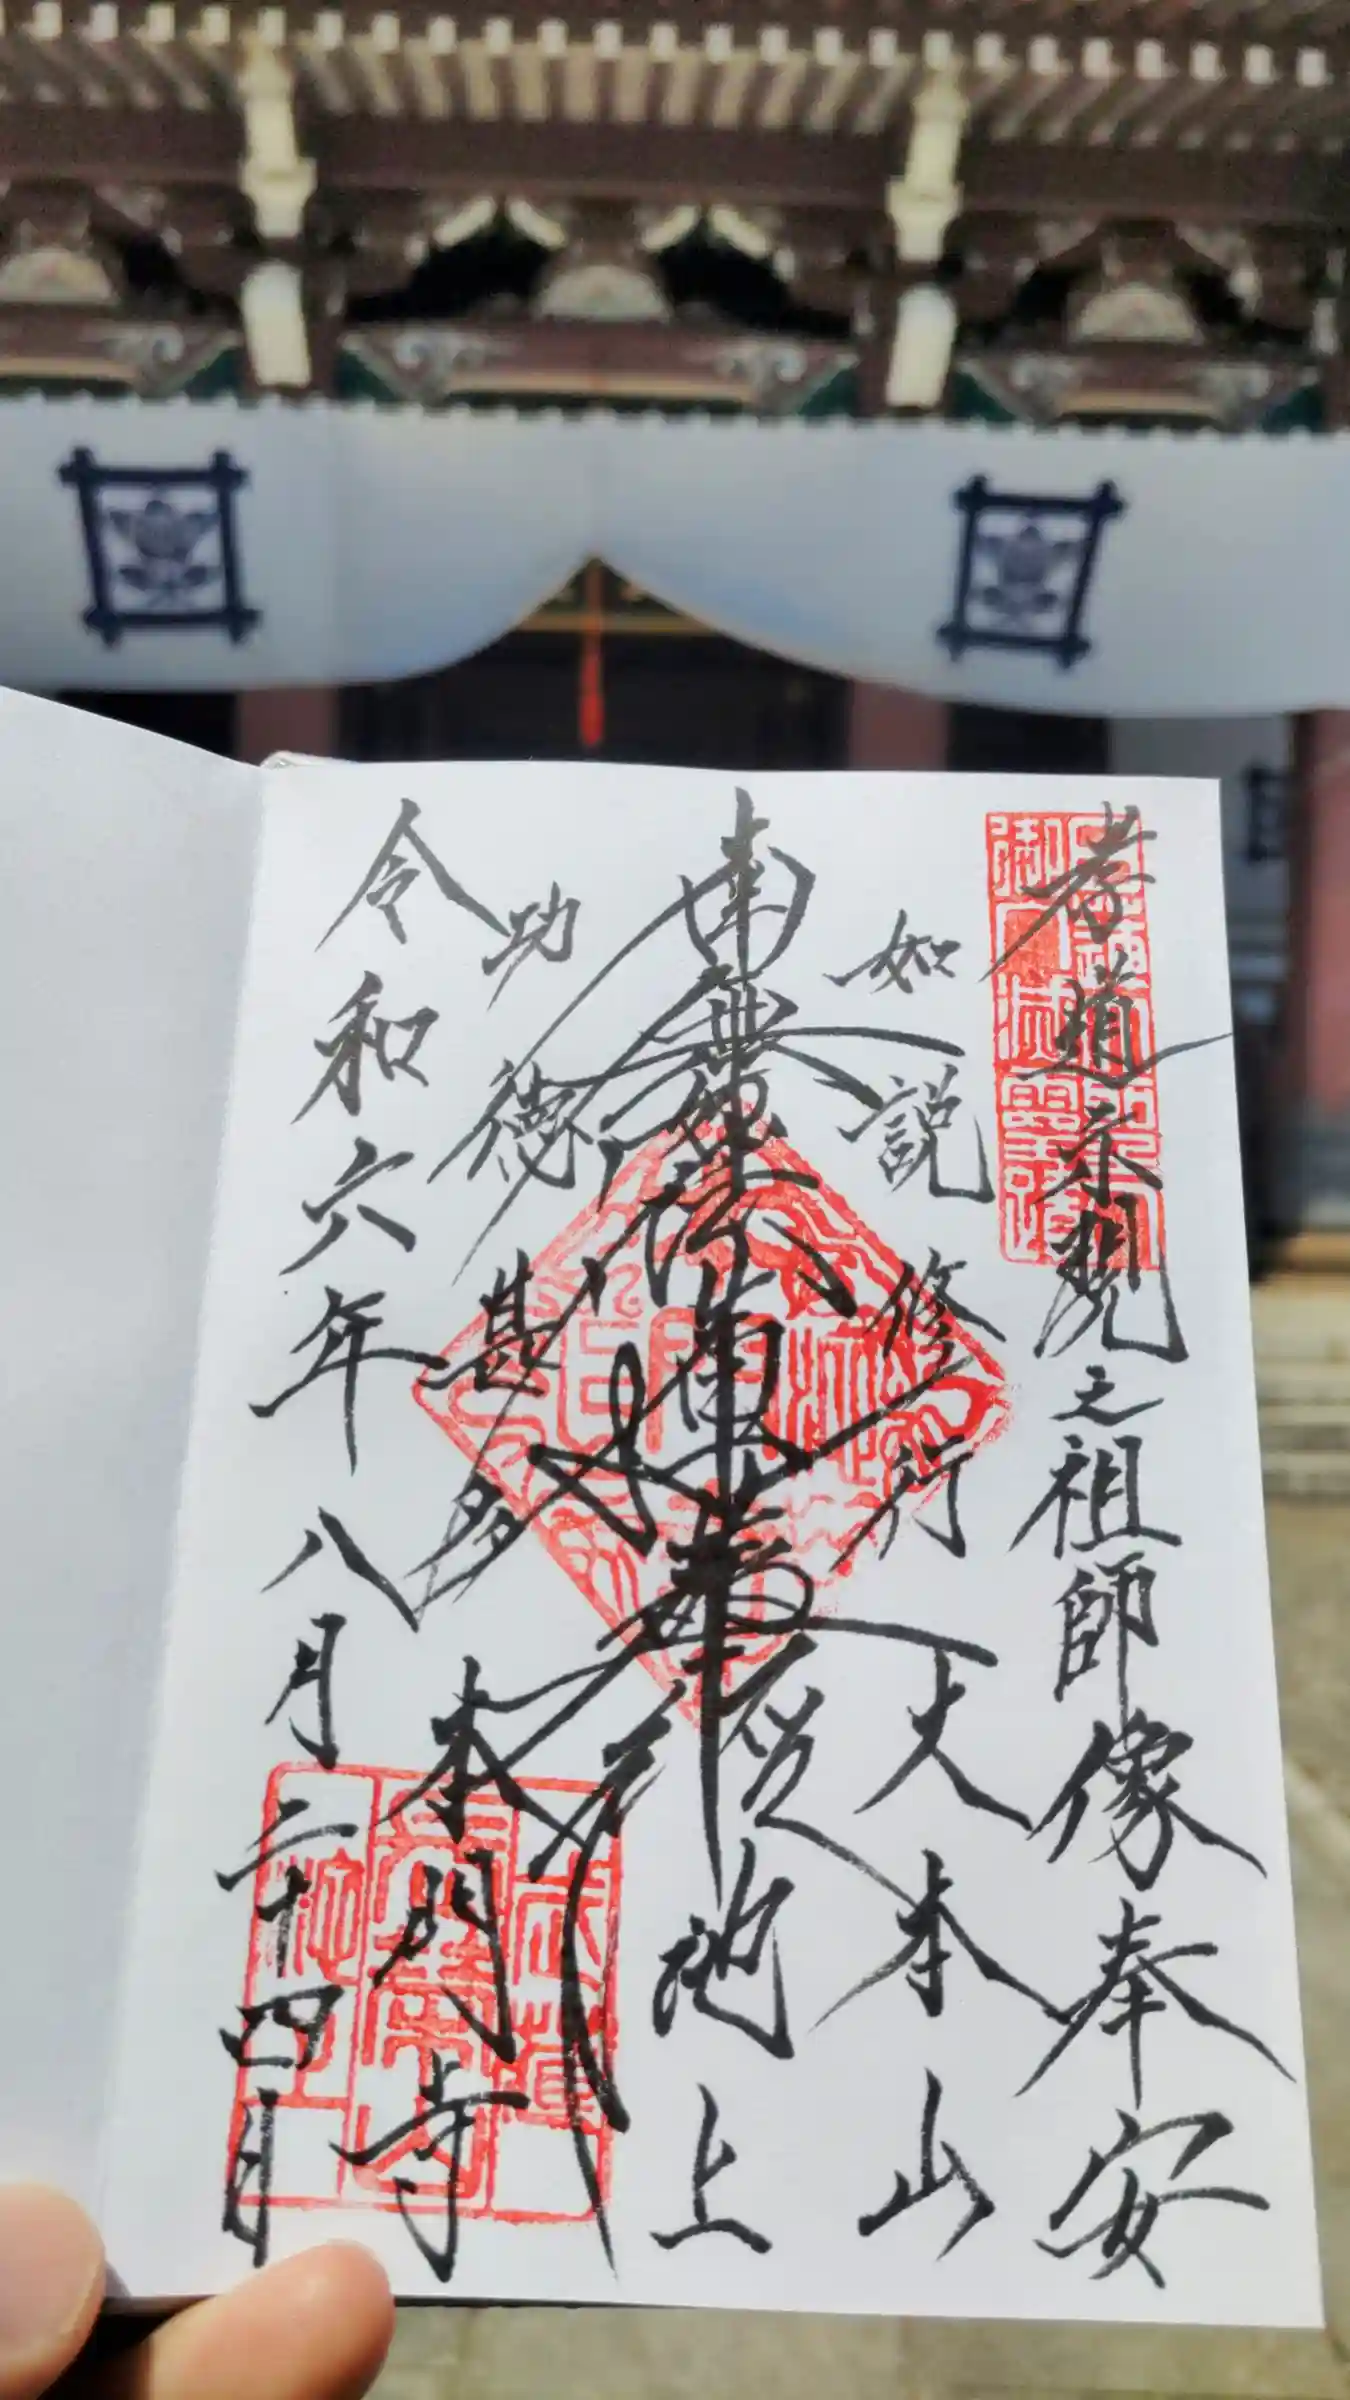 孝道示現之祖師像奉安
如説修行 大本山
南無妙法蓮華経 池上
功徳甚多 本門寺
令和六年八月二十四日